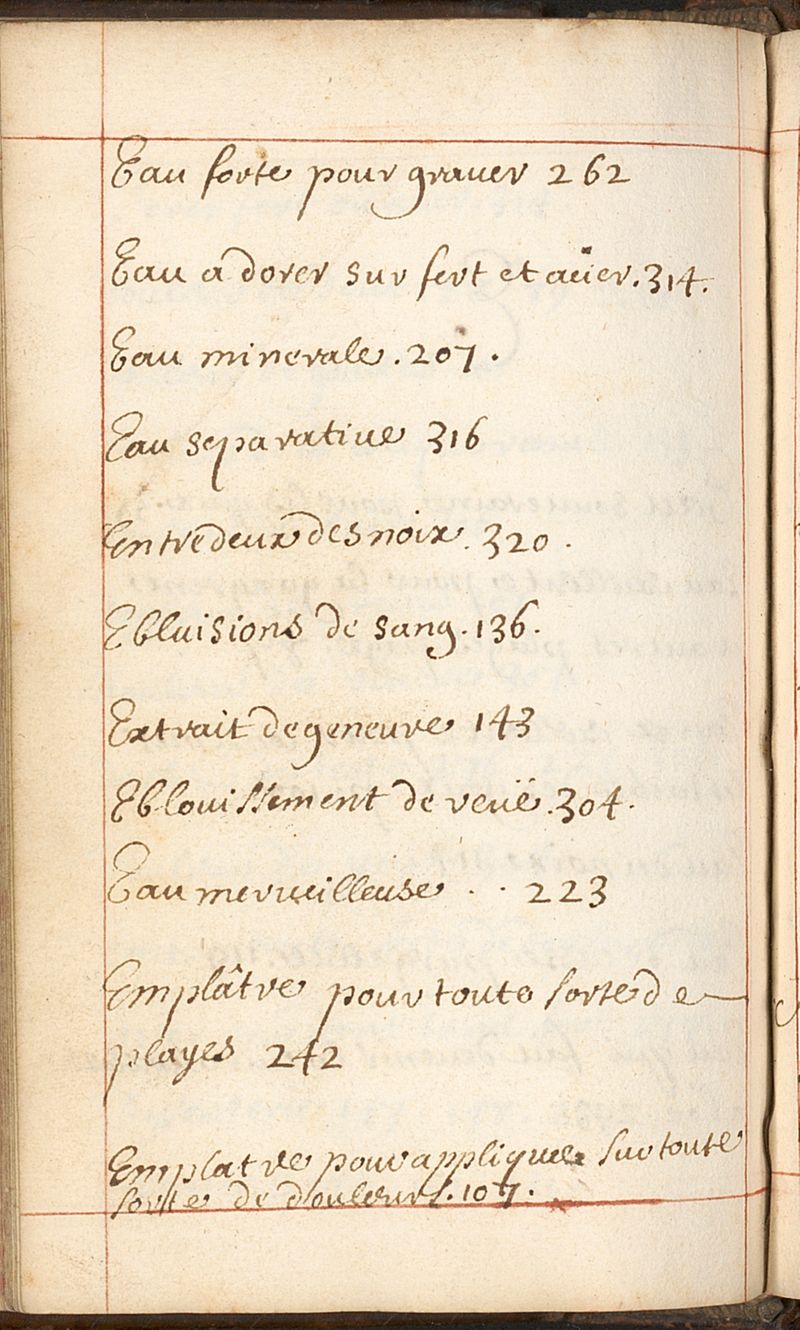 Eau forte pour grauer 262
Eau a dorer sur fert et aüer. 314.
Eau minerale. 207.
Eau separatiue 316
Entredeux des noix. 320.
Ebluisions de sang. 136.
Extrait de geneure 143
Eblouissement de veüe. 304.
Eau merueilleuse . . 223
Emplâtre pour toute sorte de
playes 242
Emplatre pour appliquer sur toute
sorte de douleurs. 107.